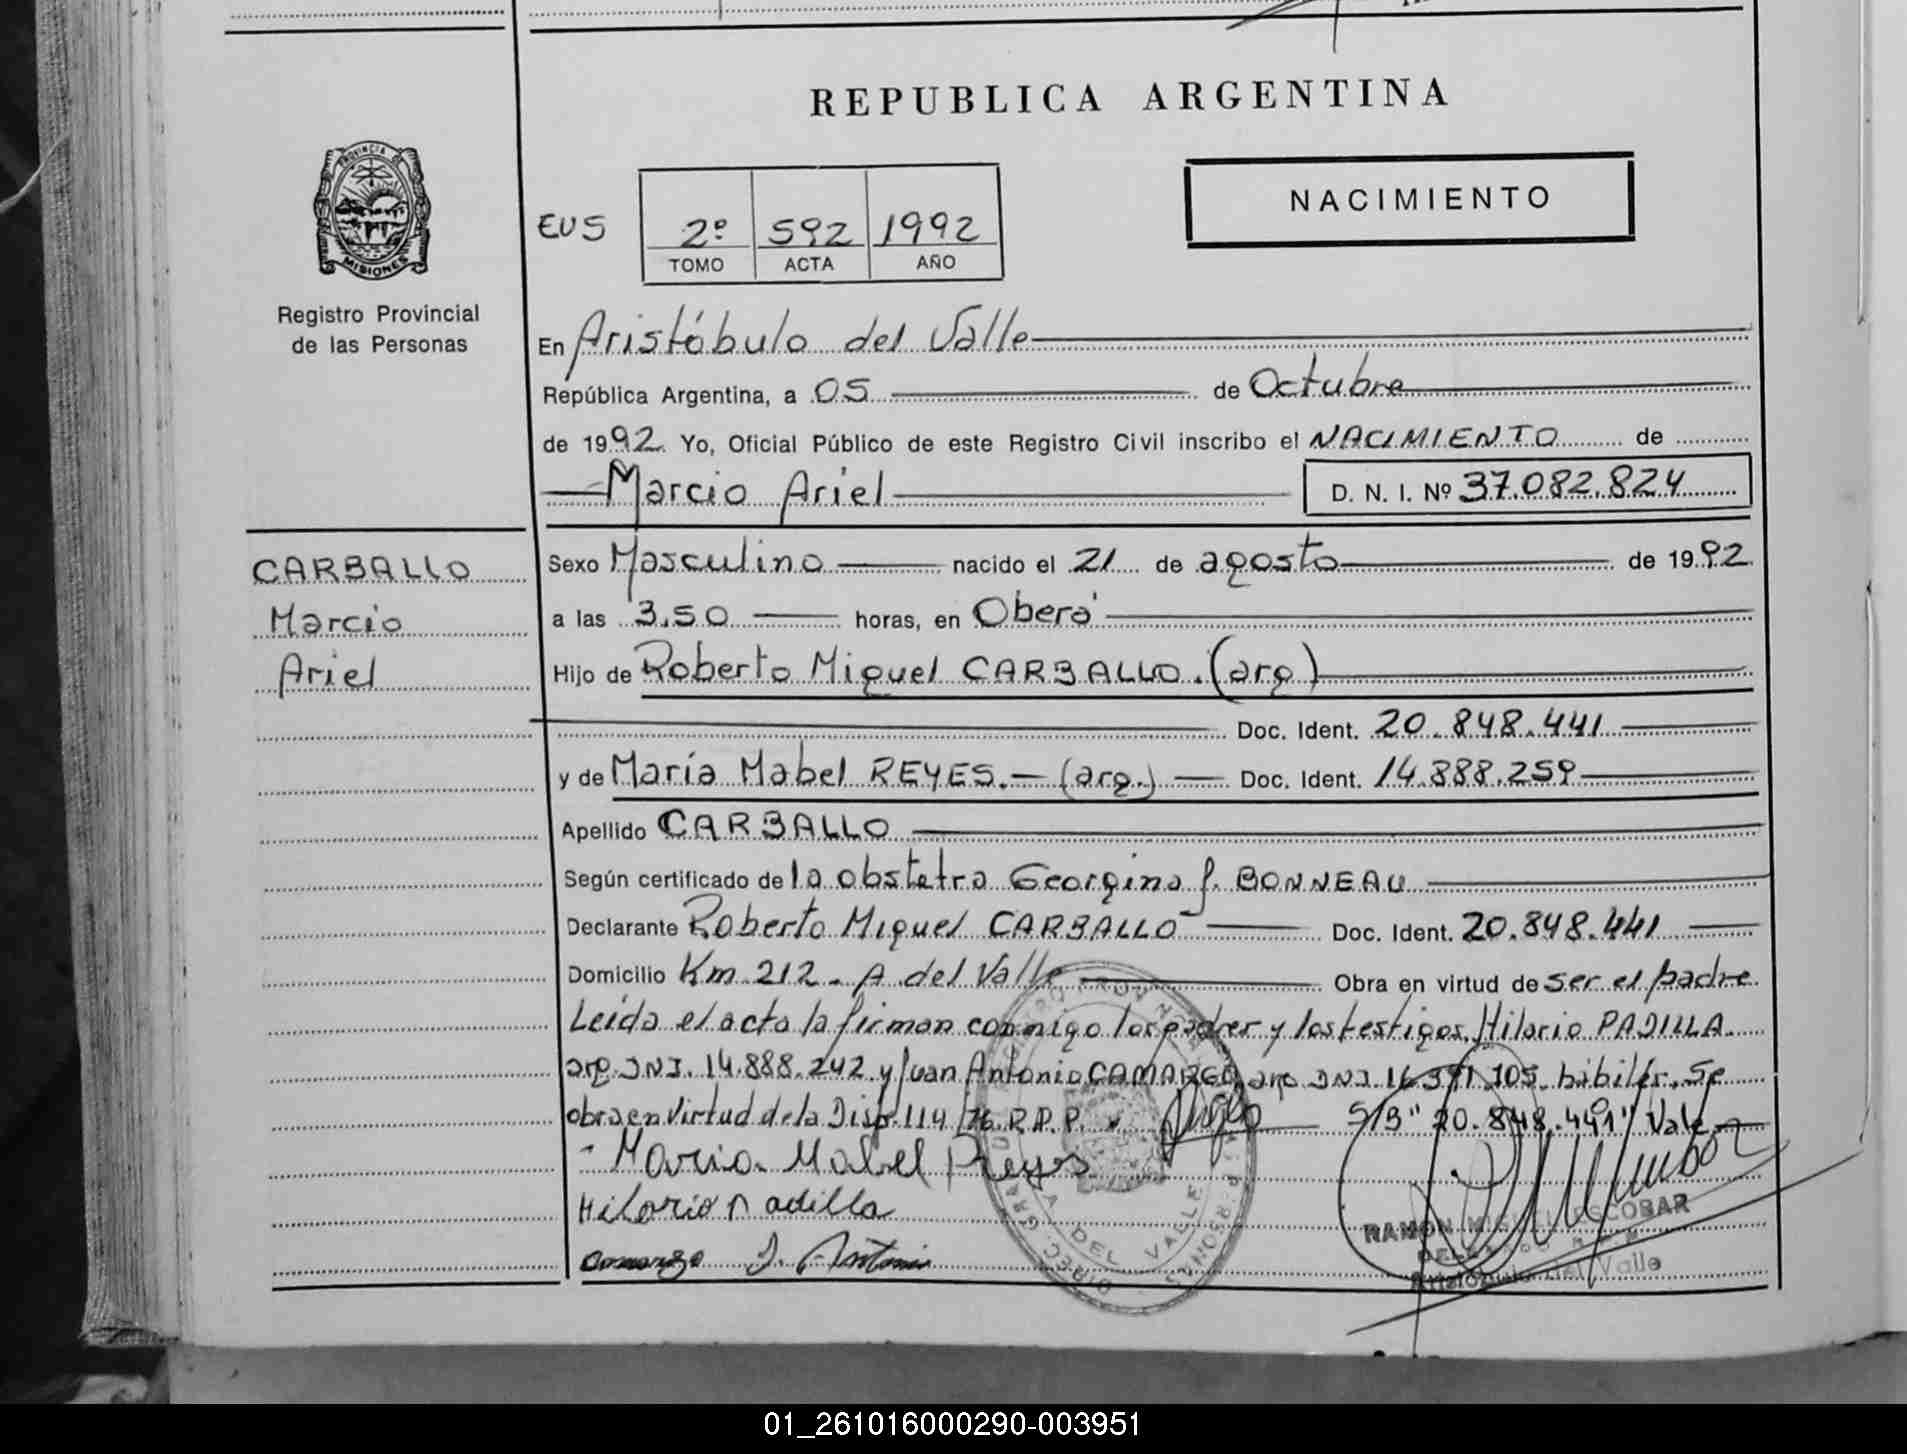 REPUBLICA ARGENTINA
PROVINCIA DE
MISIONES
Registro Provincial
de las Personas
EUS 2º 592 1992
TOMO ACTA AÑO
NACIMIENTO
En Aristóbulo del Valle
República Argentina, a 05 de Octubre
de 1992. Yo, Oficial Público de este Registro Civil inscribo el NACIMIENTO de
Marcio Ariel D. N. I. Nº 37.082.824
CARBALLO
Marcio
Ariel
Sexo Masculino nacido el 21 de agosto de 1992
a las 3.50 horas, en Oberá
Hijo de Roberto Miguel CARBALLO. (arg)
Doc. Ident. 20.848.441
y de María Mabel REYES.- (arg.) Doc. Ident. 14.888.259
Apellido CARBALLO
Según certificado de la obstetra Georgina J. BONNEAU
Declarante Roberto Miguel CARBALLO Doc. Ident. 20.848.441
Domicilio Km 212 - A. del Valle Obra en virtud de ser el padre
Leída el acta la firman conmigo los padres y los testigos, Hilario PADILLA
arg. DNI. 14.888.242 y Juan Antonio CAMARGO, arg. DNI 105. hábiles. Se
obra en Virtud de la Disp. 114/76 R.P.P. S/B "20.848.441" Vale
Maria Mabel Reyes
Hilario Padilla
Camargo J. Antonio
DEL VALLE
RAMON MIGUEL ESCOBAR
DELEGADO
Aristóbulo del Valle
01_261016000290-003951